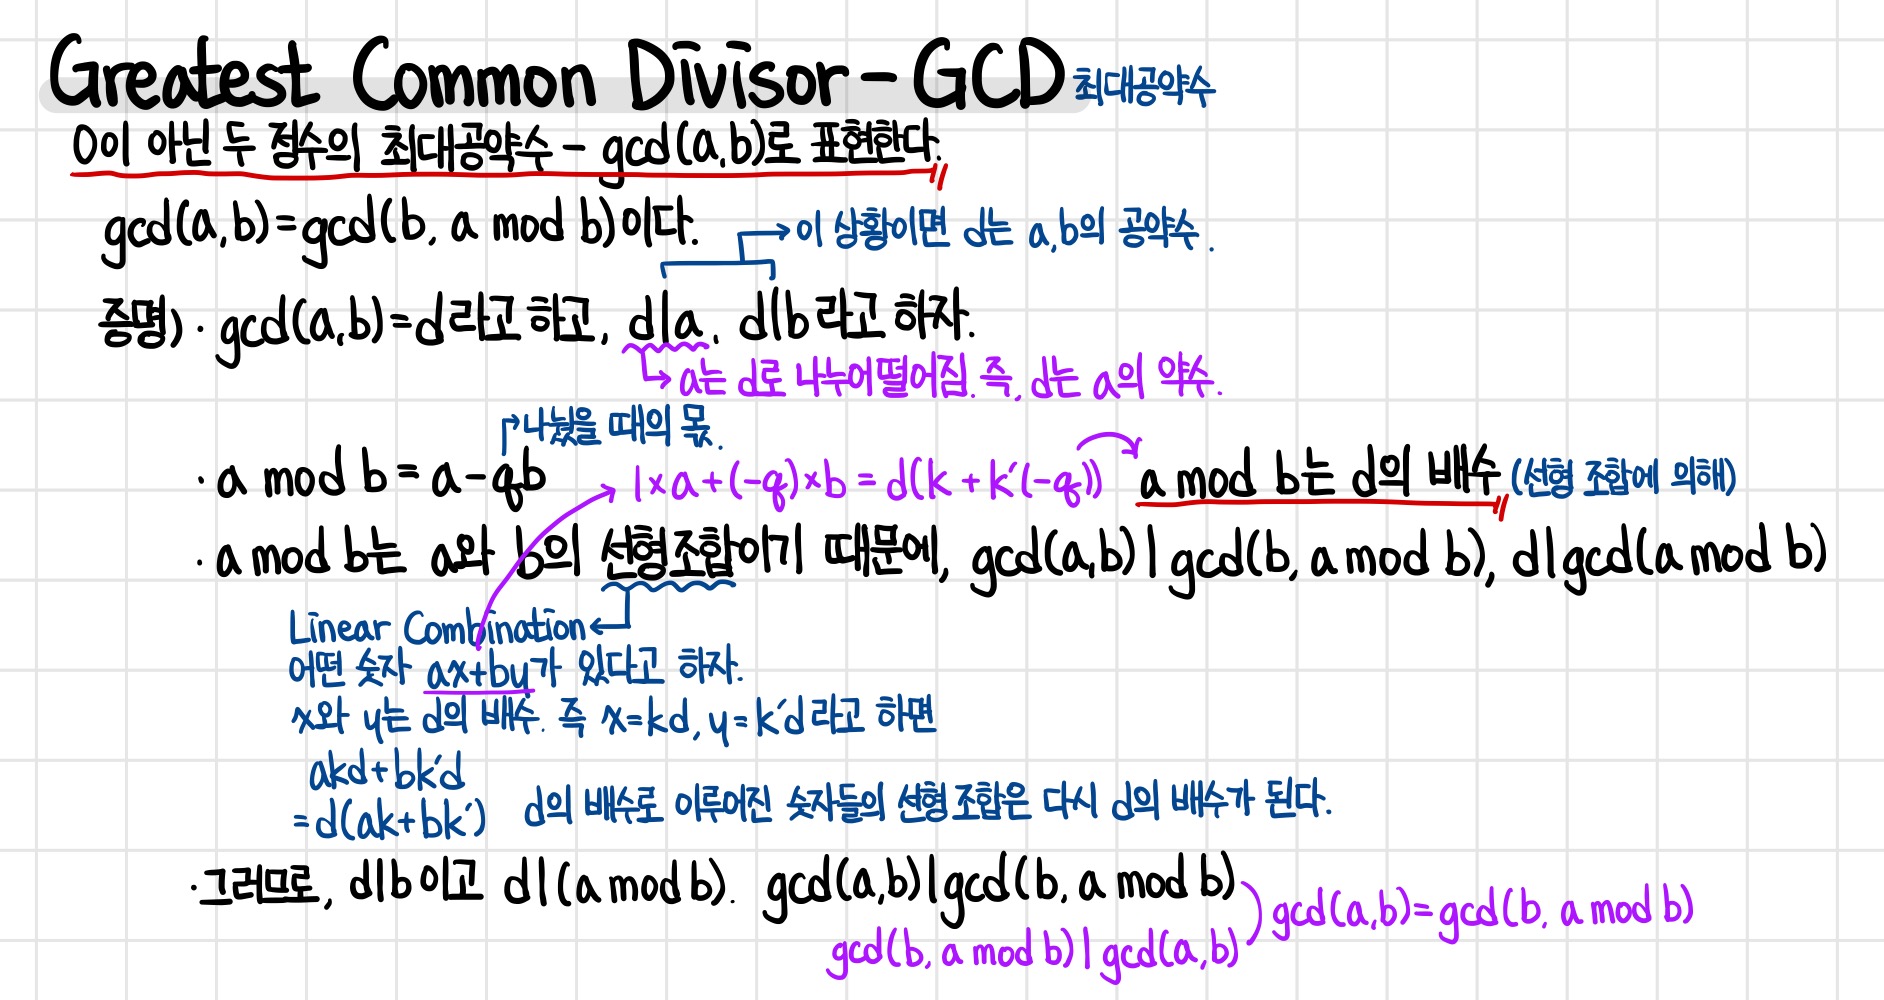 Greatest Common Divisor - GCD 최대공약수
0이 아닌 두 정수의 최대공약수 - gcd(a,b)로 표현한다.
gcd(a,b)=gcd(b, a mod b)이다.
이 상황이면 d는 a,b의 공약수.
증명) · gcd(a,b)=d라고 하고, d|a, d|b라고 하자.
a는 d로 나누어떨어짐. 즉, d는 a의 약수.
나눴을 때의 몫.
· a mod b = a-qb
1×a+(-q)×b = d(k+k'(-q))
a mod b는 d의 배수 (선형 조합에 의해)
· a mod b는 a와 b의 선형조합이기 때문에, gcd(a,b)|gcd(b, a mod b), d|gcd(a mod b)
Linear Combination
어떤 숫자 ax+by가 있다고 하자.
x와 y는 d의 배수. 즉 x=kd, y=k'd라고 하면
akd+bk'd
=d(ak+bk') d의 배수로 이루어진 숫자들의 선형 조합은 다시 d의 배수가 된다.
· 그러므로, d|b이고 d|(a mod b). gcd(a,b)|gcd(b, a mod b)
gcd(b, a mod b)|gcd(a,b)
gcd(a,b)=gcd(b, a mod b)